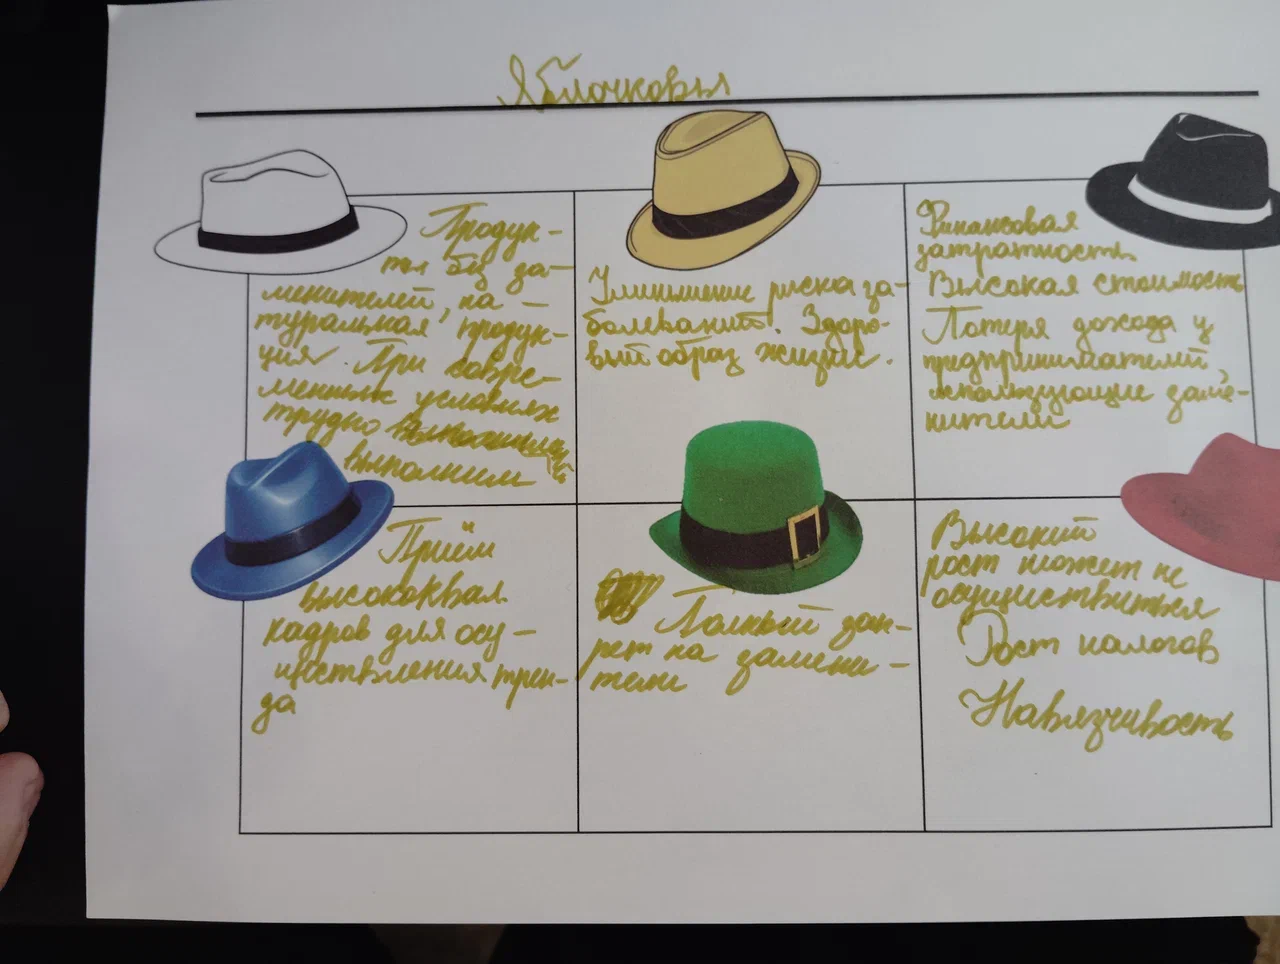 Яблочковы
Продук-
ты без за-
менителей, на-
туральная продук-
ция. При совре-
менных условиях
трудно
выполним
Уменьшение риска за-
болеваний. Здоро-
вый образ жизни.
Финансовая
затратность
Высокая стоимость
Потеря дохода у
предпринимателей,
использующие заме-
нители
Приём
высококвал.
кадров для осу-
ществления трен-
да
Полный зап-
рет на замени-
тели
Высокий
рост может не
осуществиться
Рост налогов
Навязчивость